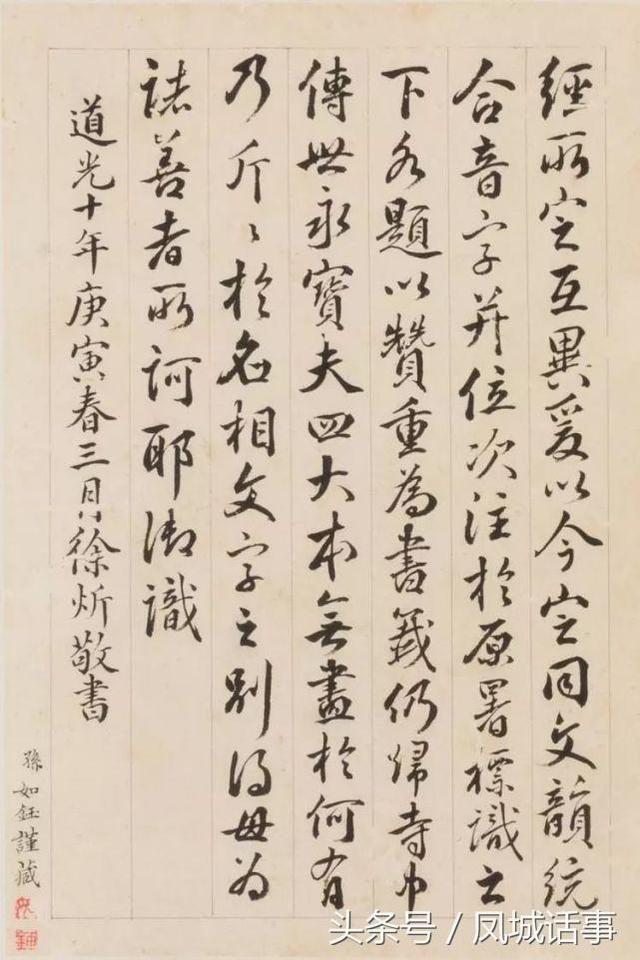 經所定互異爰以今定同文韻統
合音字并位次注於原署標識之
下各題以贊重為書籤仍歸寺中
傳世永寶夫四大本無盡於何有
乃斤斤於名相文字之別得毋為
諸善者所訶耶御識
道光十年庚寅春三月徐炘敬書
孫如鈺謹藏
头条号 / 凤城话事